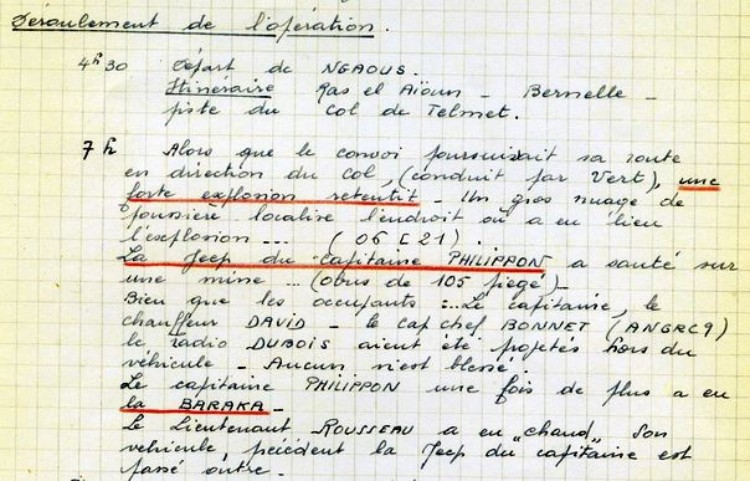 Déroulement de l'opération.
4h30 Départ de NGAOUS.
Itinéraire Ras el Aïoun - Bernelle -
piste du Col de Telmet.
7h Alors que le convoi poursuivait sa route
en direction du col, (conduit par Vert), une
forte explosion retentit - Un gros nuage de
poussière localise l'endroit où a eu lieu
l'explosion ... (06 C 21).
La Jeep du capitaine PHILIPPON a sauté sur
une mine ... (obus de 105 piegé) -
Bien que les occupants :.. Le capitaine, le
chauffeur DAVID - le cap chef BONNET (ANGRC9)
le radio DUBOIS aient été projetés hors du
véhicule - Aucun n'est blessé.
Le capitaine PHILIPPON une fois de plus a eu
la BARAKA -
Le Lieutenant ROUSSEAU a eu "chaud" Son
vehicule, précédent la Jeep du capitaine est
passé outre.